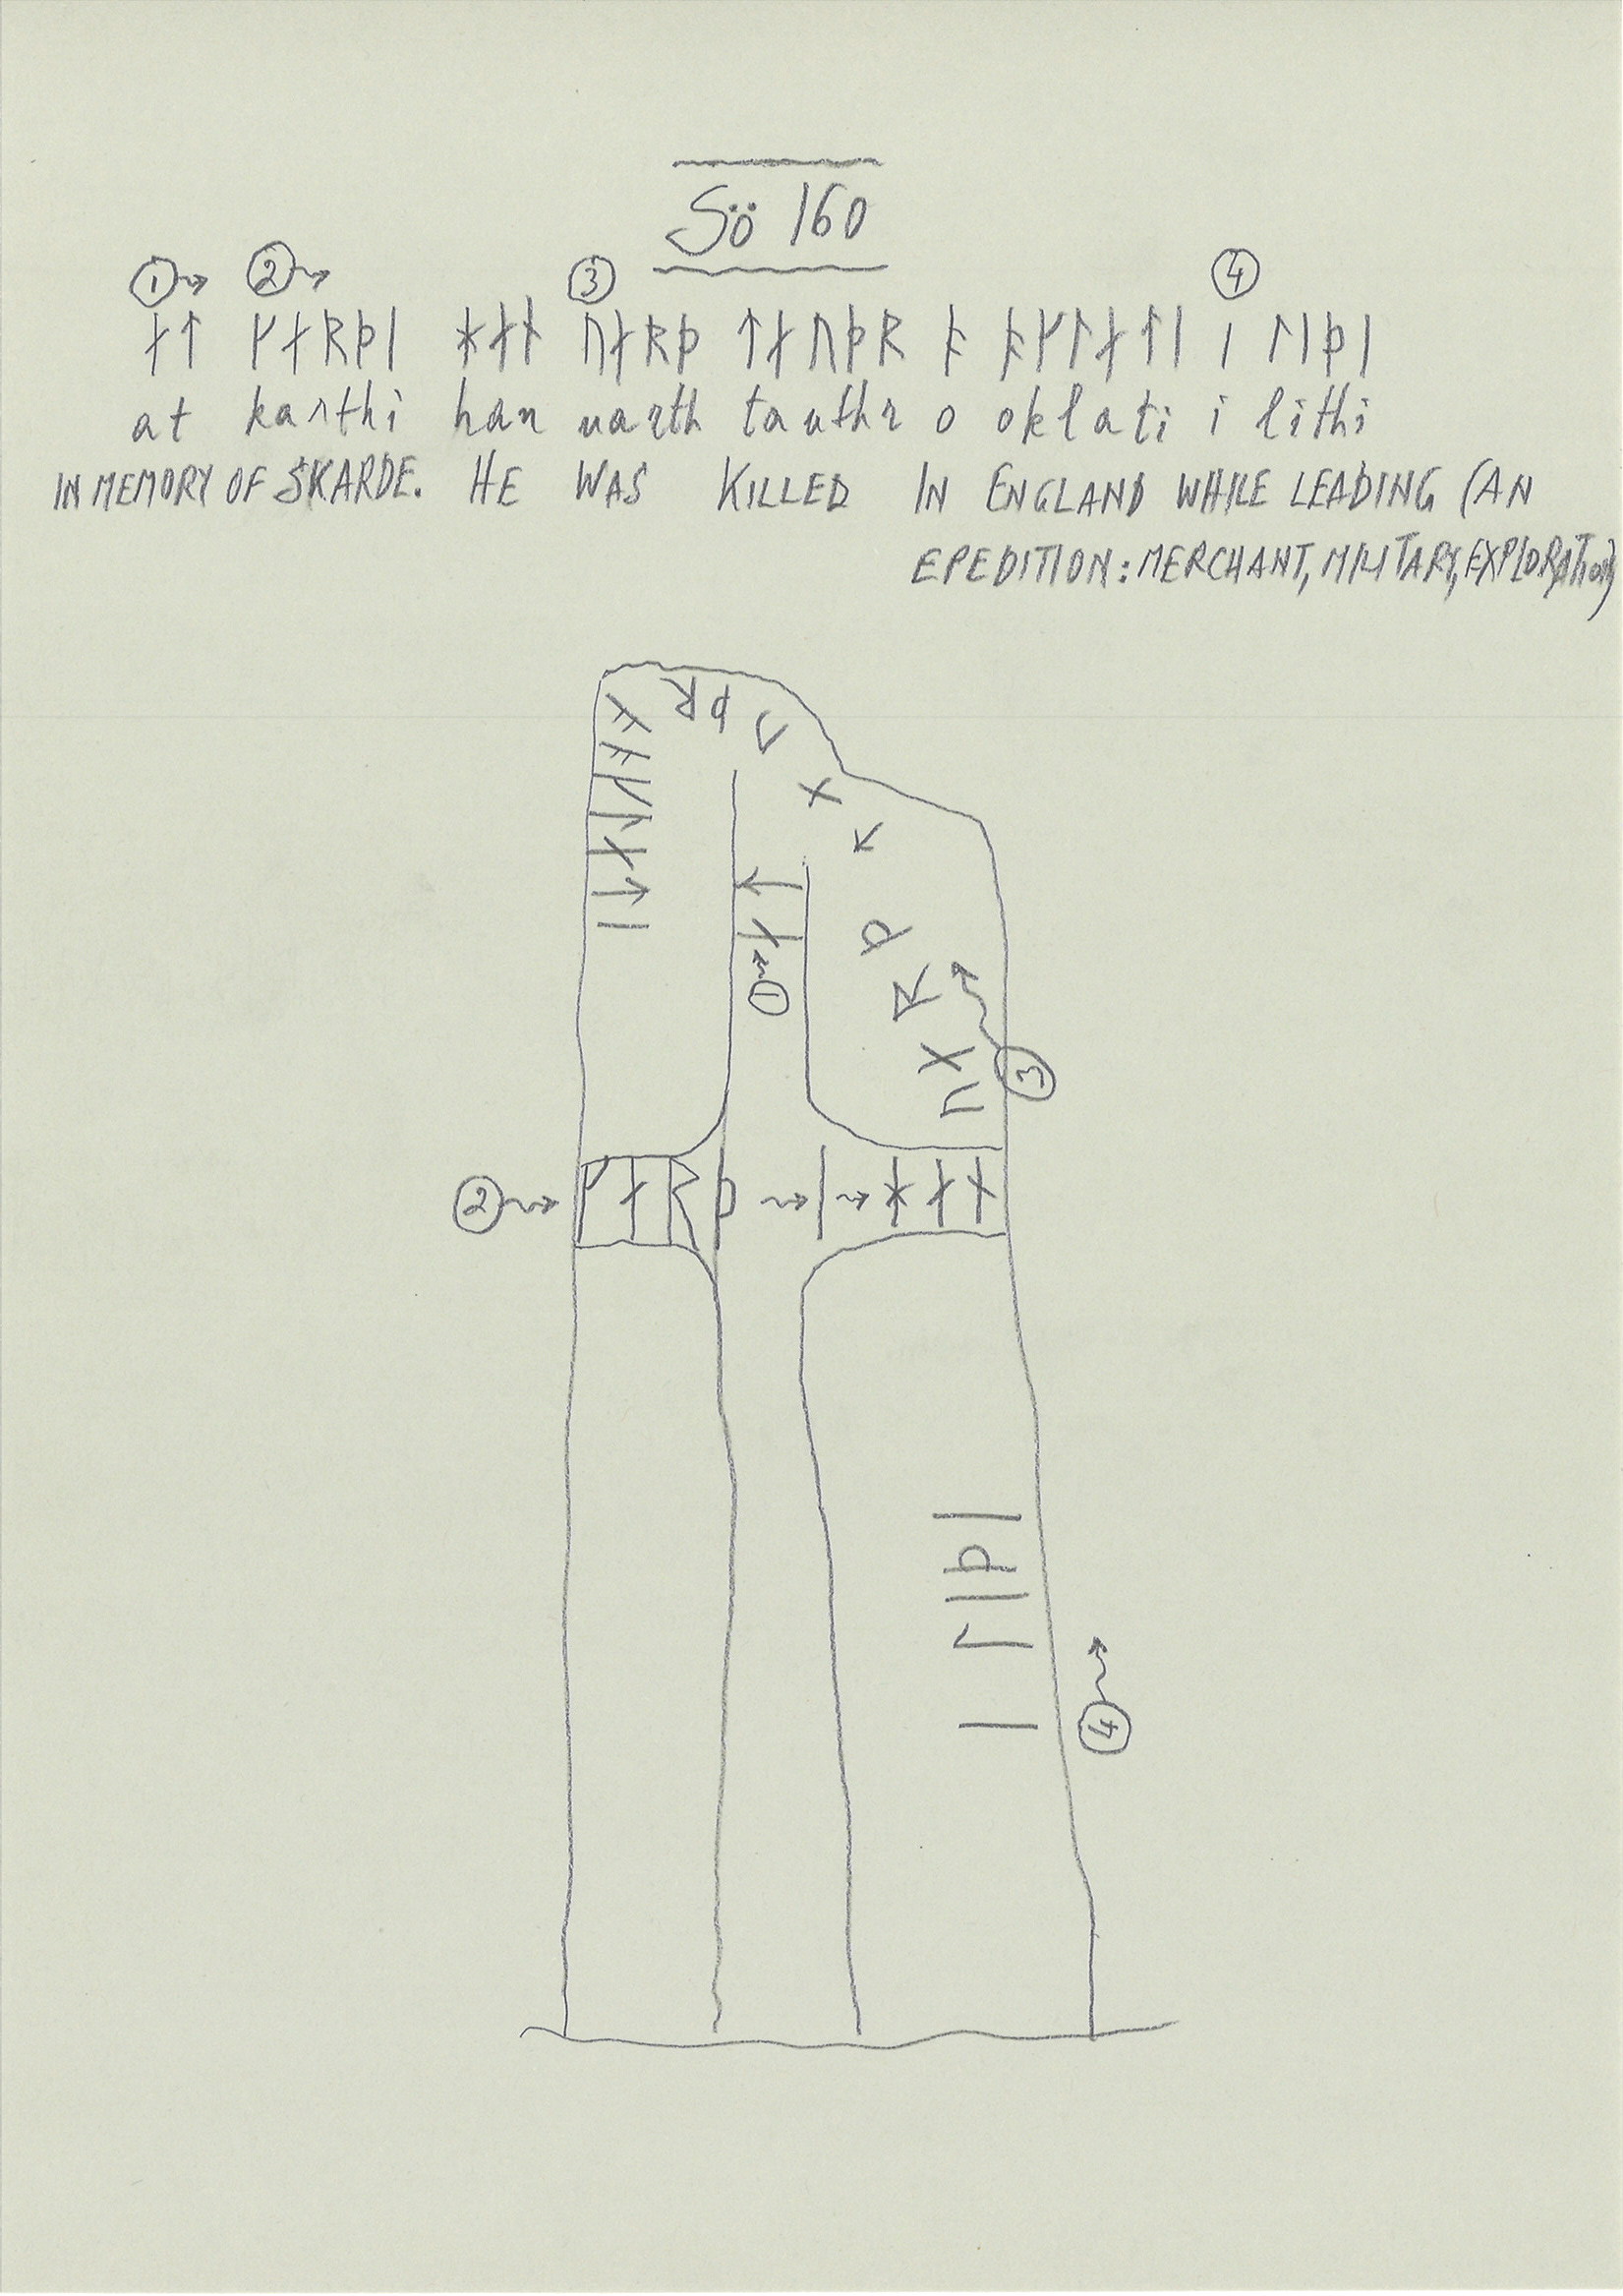 Sö 160
① ② ③ ④
ᛅᛏ ᚴᛅᚱᚦᛁ ᚼᛅᚾ ᚢᛅᚱᚦ ᛏᛅᚢᚦᚱ ᚬ ᚬᚴᛚᛅᛏᛁ ᛁ ᛚᛁᚦᛁ
at karthi han uarth tauthr o oklati i lithi
IN MEMORY OF SKARDE. HE WAS KILLED IN ENGLAND WHILE LEADING (AN
EPEDITION: MERCHANT, MILITARY, EXPLORATION)
① ᛅᛏ
② ᚴᛅᚱᚦᛁ ᚼᛅᚾ
③ ᚢᛅᚱᚦ ᛏᛅᚢᚦᚱ ᚬ ᚬᚴᛚᛅᛏᛁ
④ ᛁ ᛚᛁᚦᛁ